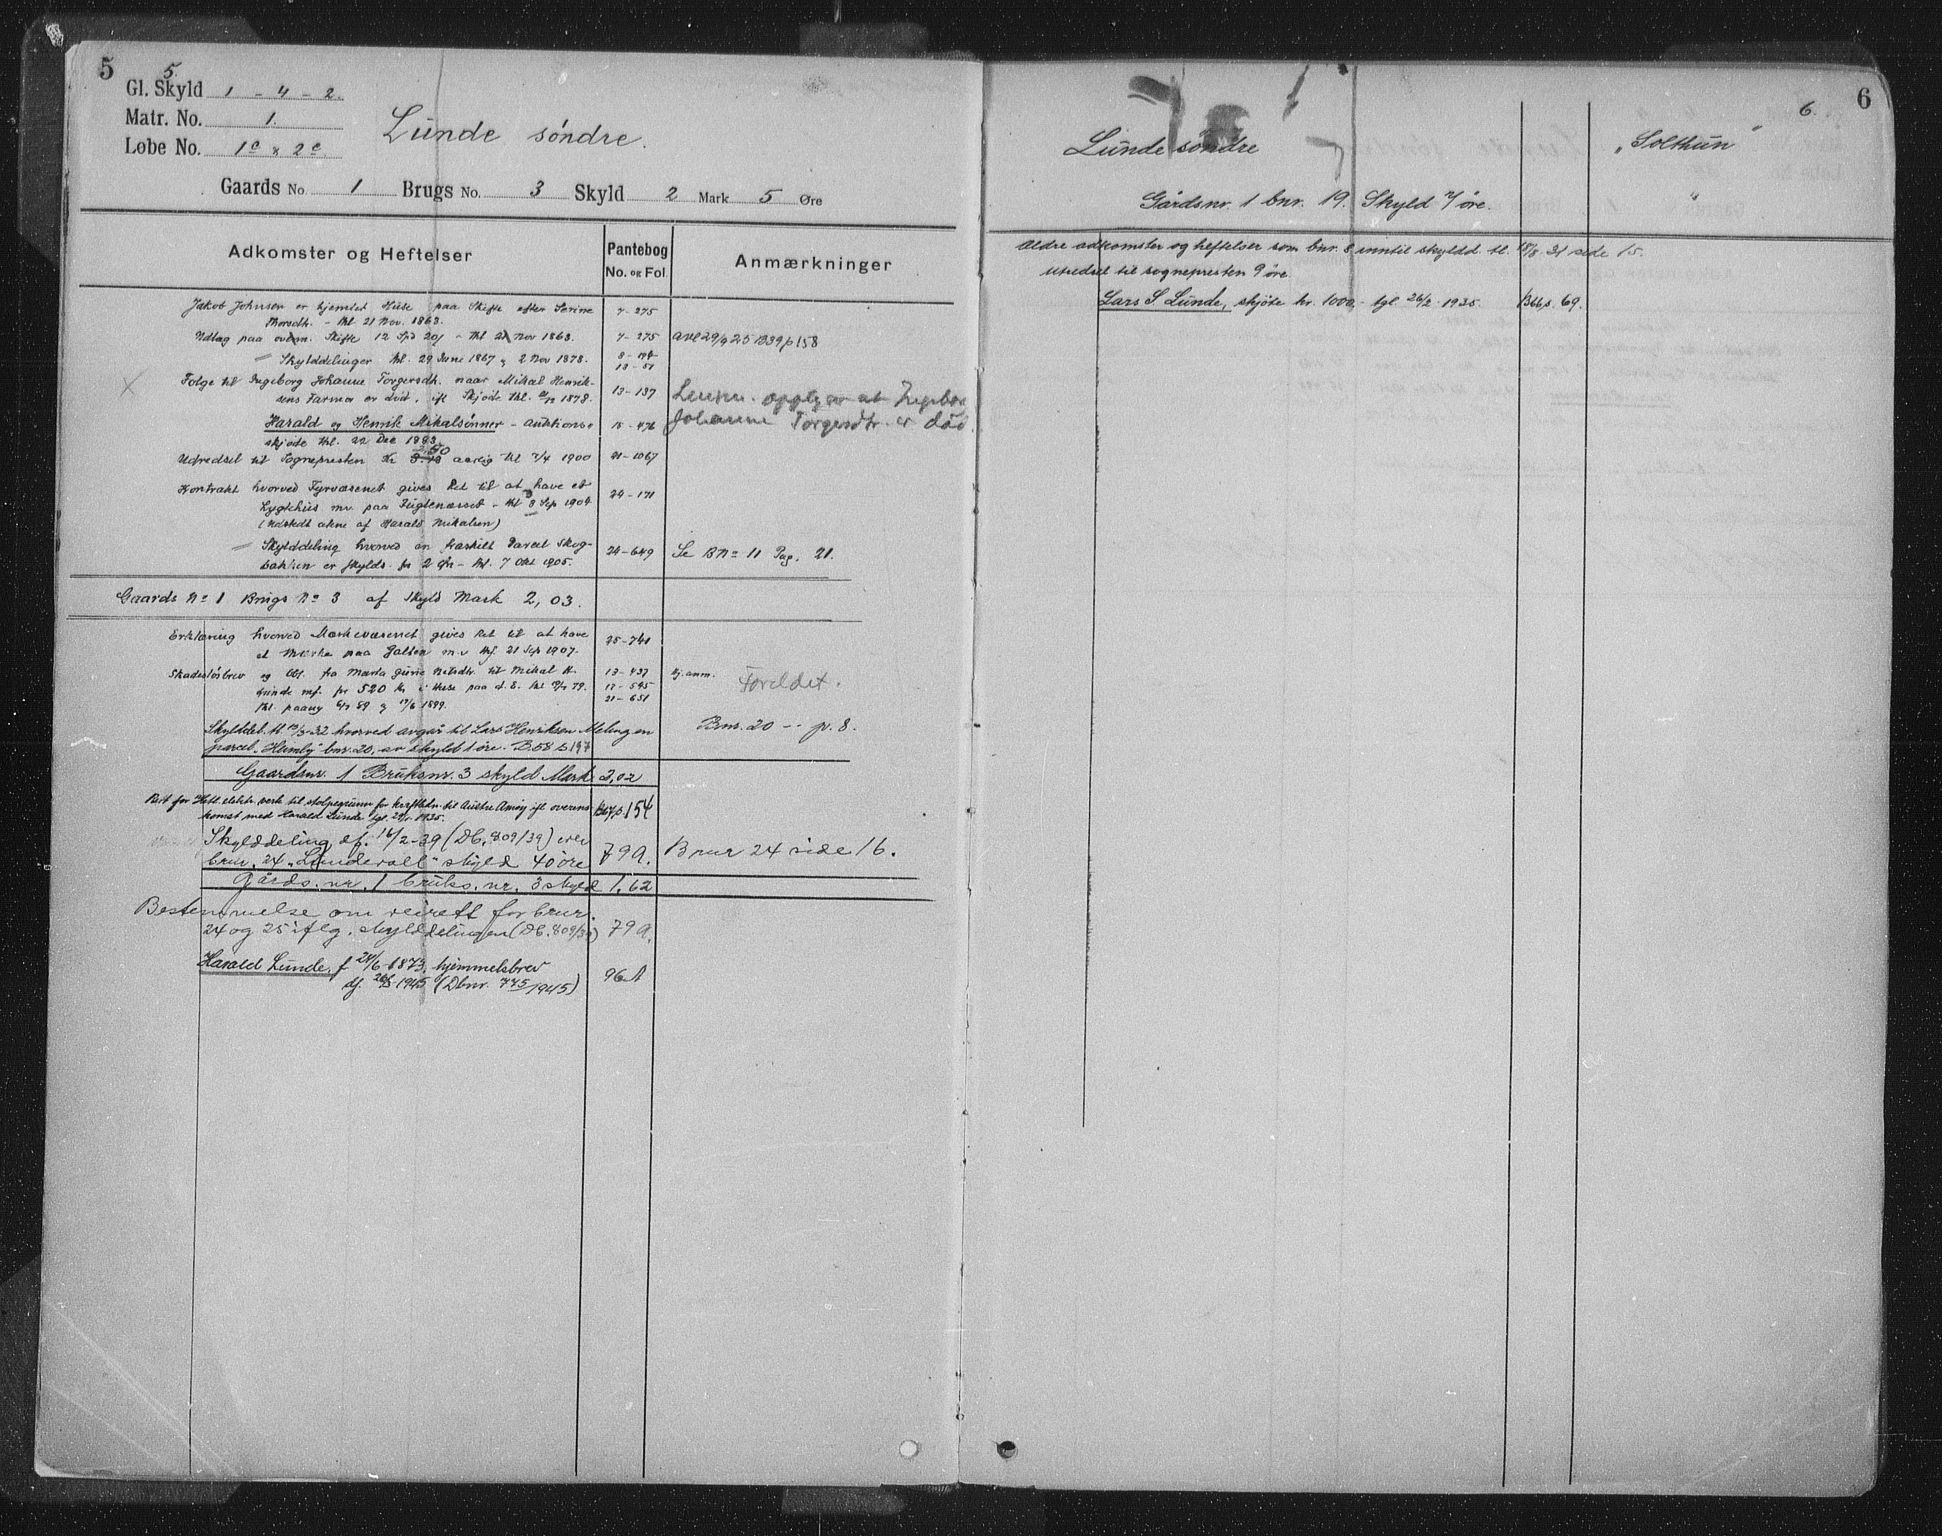 5
5.
Gl. Skyld 1 - 4 - 2.
Matr. No. 1.
Løbe No. 1c & 2c
Lunde søndre.
Gaards No. 1 Brugs No. 3 Skyld 2 Mark 5 Øre
Adkomster og Heftelser
Pantebog No. og Fol.
Anmærkninger
Jakob Johnsen er hjemlet Huse paa Skifte efter Serine
Thorsdtr. - thl 21 Nov. 1863. 7-275
Udlæg paa ovenn. Skifte 12 Spd 20 - thl 21 Nov 1863. 7-275 avl 29/9 25 B39 p 158
Skylddelinger thl. 29 Juni 1867 & 2 Nov 1878. 8-
13-51
Følge til Ingeborg Johanne Torgersdtr. naar Mikal Henrik-
sens Farmor er død, ift Skjøde thl. 1878. 13-137
Lensm. opplyser at Ingebor
Johanne Torgersdtr. er død.
Harald og Henrik Mikalsønner - Auktions-
skjøde thl. 22 Dec 1893 15-476
Udredsel til Sognepresten Kr aarlig thl 7/4 1900 21-1067
Kontrakt hvorved Fyrvæsenet gives Ret til at have et
Lygtehus mv. paa Fugtenæsset - thl 3 Sep 1904 24-171
(Udstedt alene af Harald Mikalsen)
Skylddeling hvorved en fraskilt Parcel Skog-
bakken er skylds. for 2 Øre - thl. 7 Okt 1905. 24-649 Se B No 11 Pag. 21.
Gaards No 1 Brugs No 3 af Skyld Mark 2,03.
Erklæring hvorved Mærkevæsenet gives Ret til at have
et Mærke paa Galten m.v. thl. 21 Sep 1907. 25-741
Skadesløsbrev og Obl. fra Marta Gurine Nilsdtr. til Mikal H.
Lunde mf. for 520 Kr i Huse paa d. E. thl 79. 13-437 kj. anm. Foreldet.
thl. paany 89 & 17/6 1899. 17-595
21-651
Skylddel. tl. 12/3-32 hvorved avgår til Lars Henriksen Meling en
parcel „Humly" bnr. 20, av skyld 1 øre. B.58 s 197 Bnr. 20 -- p. 8.
Gaardsnr. 1 Bruksnr. 3 skyld Mark 2,02
Rett for Hetl. elektr. verk til stolpegrunn for kraftledn. til Austre Åmøy ifl overens-
komst med Harald Lunde tgl. 1935. B67 s 154
Skylddeling df. 16/2-39 (Db. 809/39) over
bnr. 24 „Lundevoll" skyld 40 øre 79a. Bnr 24 side 16.
Gårds. nr. 1 bruks. nr. 3 skyld 1,62
Bestemmelse om veirett for bnr.
24 og 25 iflg. skylddelingen (Db. 809/39) 79a.
Harald Lunde, f 28/6-1873, hjemmelsbrev
df. 26/5-1945 (Dbnr. 775/1945) 96A
6
6.
Lunde søndre „Solthun"
Gårdsnr. 1 bnr. 19. Skyld 7 øre.
Ældre adkomster og heftelser som bnr. 8 inntil skyldd. tl. 18/8. 31 side 15.
utredsel til sognepresten 9 øre.
Lars S. Lunde, skjøte kr. 1000,- tgl. 26/2 1935. B66 s. 69.